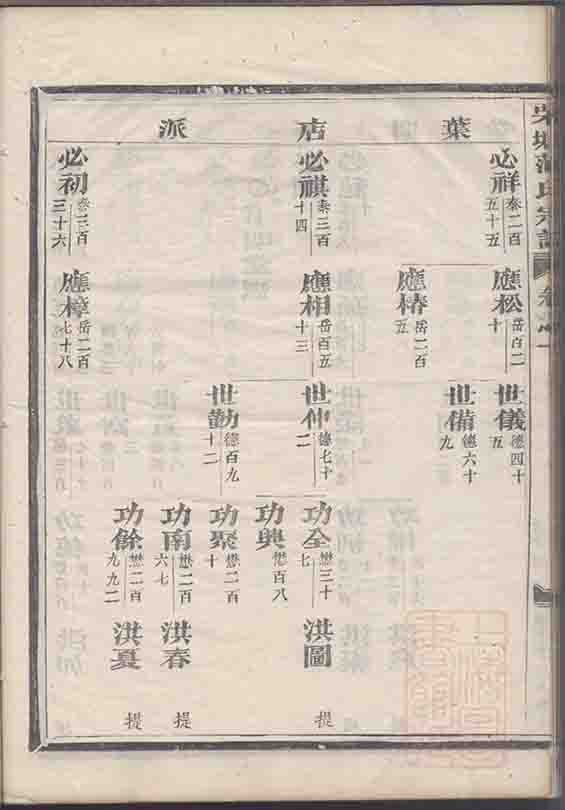 葉店派
必祥 泰二百五十五
必祺 泰三百十四
必初 泰三百三十六
應松 岳百二十
應椿 岳二百五
應相 岳百五十三
應樟 岳二百七十八
世儀 德四十五
世備 德六十九
世仲 德七十二
世勸 德百九十二
功全 懋三十七
功典 懋百八
功聚 懋二百十
功南 懋二百六七
功餘 懋二百九九二
洪圖 提
洪春 提
洪夏 提